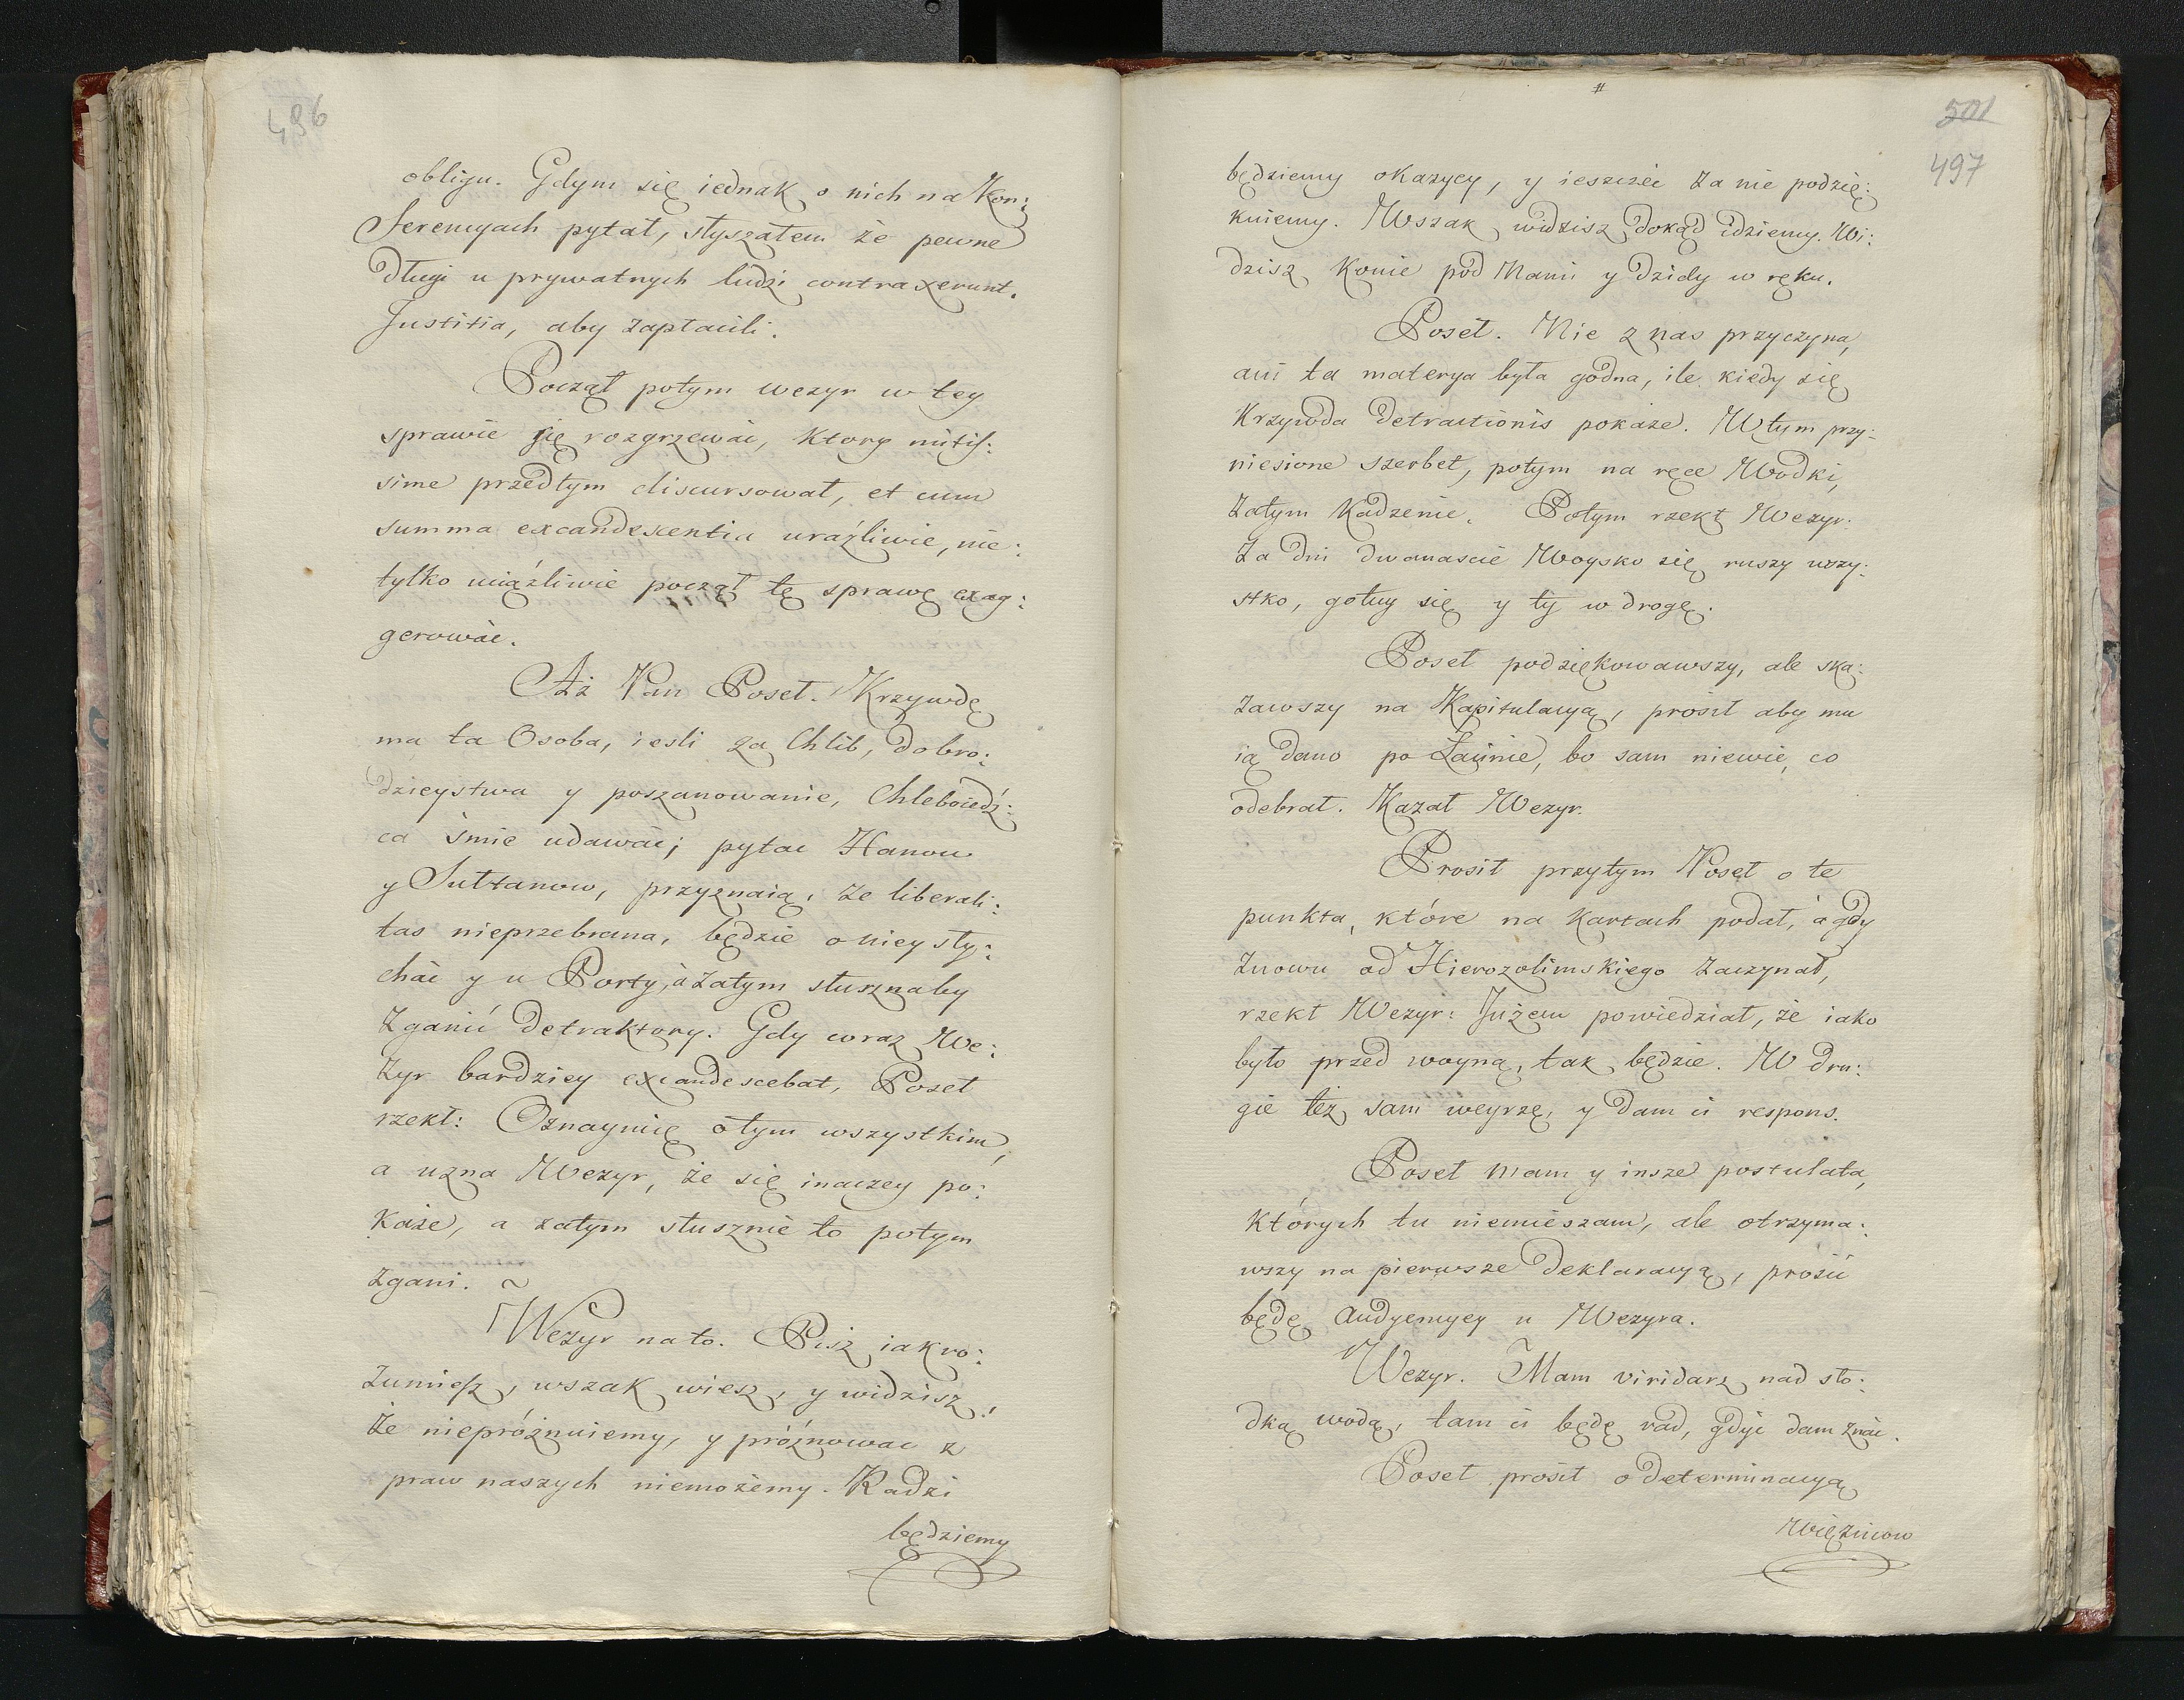 496
obligu. Gdym się iednak o nich na Kon:
ferencyach pytał, słyszałem że pewne
długi u prywatnych ludzi contraxerunt.
Justitia, aby zapłacili.
Począł potym wezyr w tey
sprawie się rozgrzewać, ktory mitis:
sime przedtym discursował, et cum
summa excandescentia uraźliwie, nie:
tylko uciążliwie począł tę sprawę exag:
gerować.
Aż Pan Poseł. Krzywdę
ma ta Osoba, iesli za Chlib, dobro:
dzieystwa y poszanowanie, Chleboiedź:
ca śmie udawać; pytać Hanow
y Sułtanow, przyznaią, że liberali:
tas nieprzebrana, będzie o niey sły:
chać y u Porty, à zatym słusznaby
Zganić detraktory. Gdy coraz We:
zyr bardziey excandescebat, Poseł
rzekł: Oznaymię o tym wszystkim,
a uzna Wezyr, że się inaczey po:
każe, a zatym słusznie to potym
zgani. ~
Wezyr na to. Pisz iak ro:
zumiesz, wszak wiesz, y widzisz!
Że niepróżnuiemy, y próżnować z
praw naszych niemożemy. Radzi
będziemy
501
497
będziemy okazycy, y ieszcze za nie podzię:
kuiemy. Wszak widzisz dokąd idziemy. Wi:
dzisz Konie pod Nami y Dzidy w ręku.
Poseł. Nie z nas przyczyna,
ani ta materya była godna, ile kiedy się
Krzywda detractionis pokaże. W tym przy:
niesione szerbet, potym na ręce Wodki,
Zatym Kadzenie. Potym rzekł Wezyr:
Za Dni dwanascie Woysko się ruszy wszy:
stko, gotuy się y ty w drogę.
Poseł podziękowawszy, ale ska:
zawszy na Kapitulacyą, prosił aby mu
ią dano po Łacinie, bo sam niewie, co
odebrał. Kazał Wezyr.
Prosił przytym Poseł o te
punkta, które na Kartach podał, à gdy
Znowu od Hierozolimskiego Zaczynał,
rzekł Wezyr: Jużem powiedział, że iako
było przed woyną, tak będzie. W dru:
gie też sam weyrzę, y dam ci respons.
Poseł Mam y insze postulata,
których tu niemieszam, ale otrzyma:
wszy na pierwsze deklaracyą, prosić
będę Audyencyey u Wezyra.
Wezyr. Mam viridarz nad sło:
dką wodą, tam ci będę rad, gdyć dam znać.
Poseł prosił o determinacyą
Więźniow